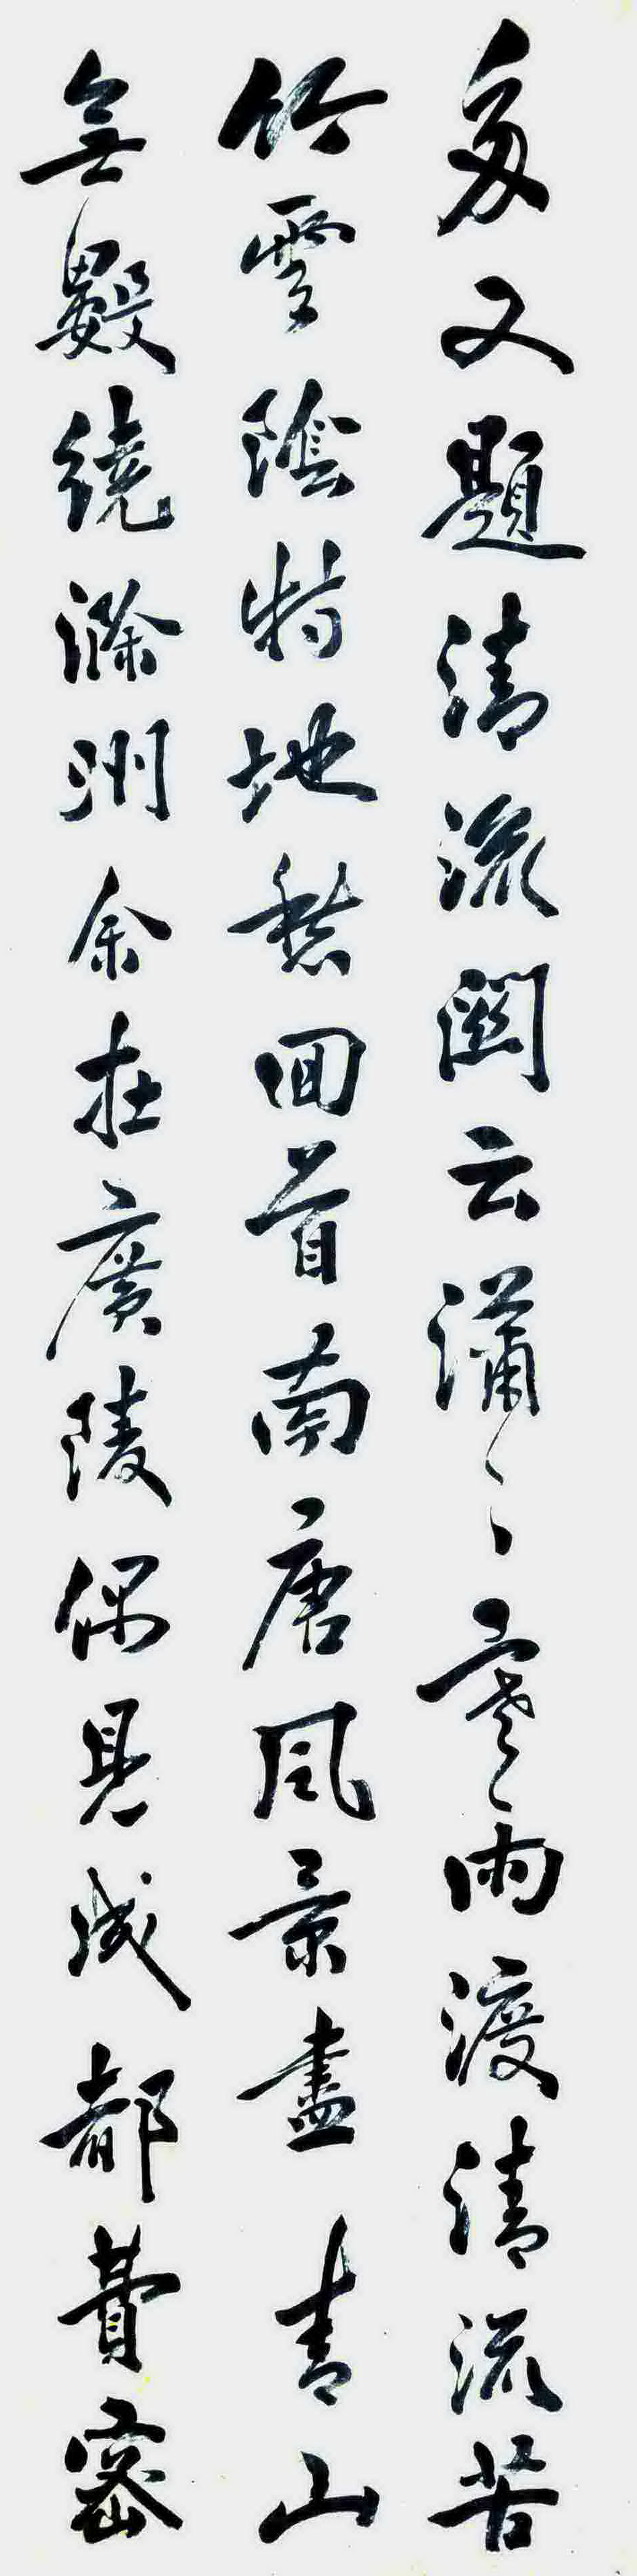 多又題清流關云瀟〻寒雨渡清流苦
竹雲陰特地愁回首南唐風景盡青山
無數繞滁州余在廣陵偶見成都費密